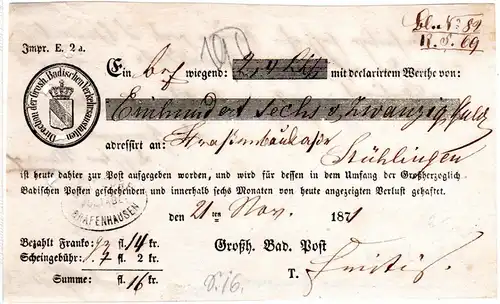 Impr. E. 2 a.
Bln. No. 82
R. S. 69
Ein Brf wiegend: 2,4 Lth mit declarirtem Werthe von:
Einhundert sechs u. zwanzig Guld
adressirt an: Straßenbaukasse
Stühlingen
Direction der Grosh. Badischen Verkehrsanstalten
ist heute dahier zur Post aufgegeben worden, und wird für dessen in dem Umfang der Großherzoglich
Badischen Posten geschehenden und innerhalb sechs Monaten von heute angezeigten Verlust gehaftet.
GRAFENHAUSEN
den 21ten Nov. 1871
Bezahlt Franko: fl. 14 kr.
Großh. Bad. Post
Scheingebühr: fl. 2 kr.
T.
Summe: fl. 16 kr.
S. 16.